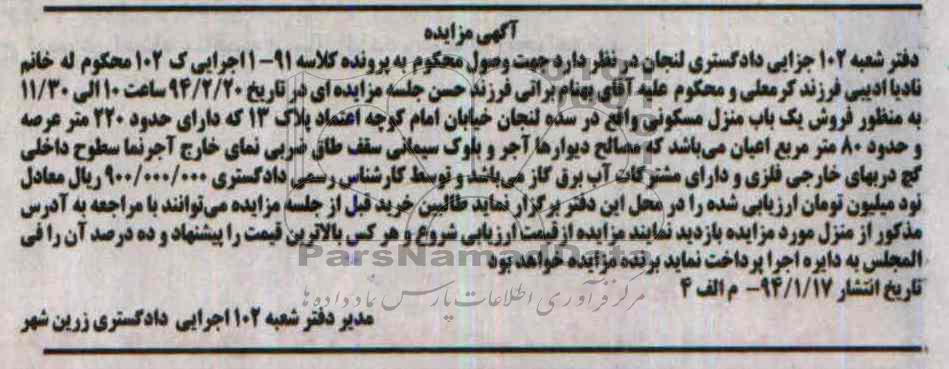 آگهی مزایده
دفتر شعبه ۱۰۲ جزایی دادگستری لنجان در نظر دارد جهت وصول محکوم به پرونده کلاسه ۹۱-۱ اجرایی ک ۱۰۲ محکوم له خانم
نادیا ادیبی فرزند کرمعلی و محکوم علیه آقای بهنام براتی فرزند حسن جلسه مزایده ای در تاریخ ۹۴/۲/۲۰ ساعت ۱۰ الی ۱۱/۳۰
به منظور فروش یک باب منزل مسکونی واقع در سده لنجان خیابان امام کوچه اعتماد پلاک ۱۳ که دارای حدود ۲۲۰ متر عرصه
و حدود ۸۰ متر مربع اعیان می‌باشد که مصالح دیوارها آجر و بلوک سیمانی سقف طاق ضربی نمای خارج آجرنما سطوح داخلی
گچ دربهای خارجی فلزی و دارای مشترکات آب برق گاز می‌باشد و توسط کارشناس رسمی دادگستری ۹۰۰/۰۰۰/۰۰۰ ریال معادل
نود میلیون تومان ارزیابی شده را در محل این دفتر برگزار نماید طالبین خرید قبل از جلسه مزایده می‌توانند با مراجعه به آدرس
مذکور از منزل مورد مزایده بازدید نمایند مزایده از قیمت ارزیابی شروع و هر کس بالاترین قیمت را پیشنهاد و ده درصد آن را فی
المجلس به دایره اجرا پرداخت نماید برنده مزایده خواهد بود
ParsNamadData
تاریخ انتشار ۹۴/۱/۱۷- م الف ۴
مرکز فرآوری اطلاعات پارس نماد داده ها
مدیر دفتر شعبه ۱۰۲ اجرایی دادگستری زرین شهر